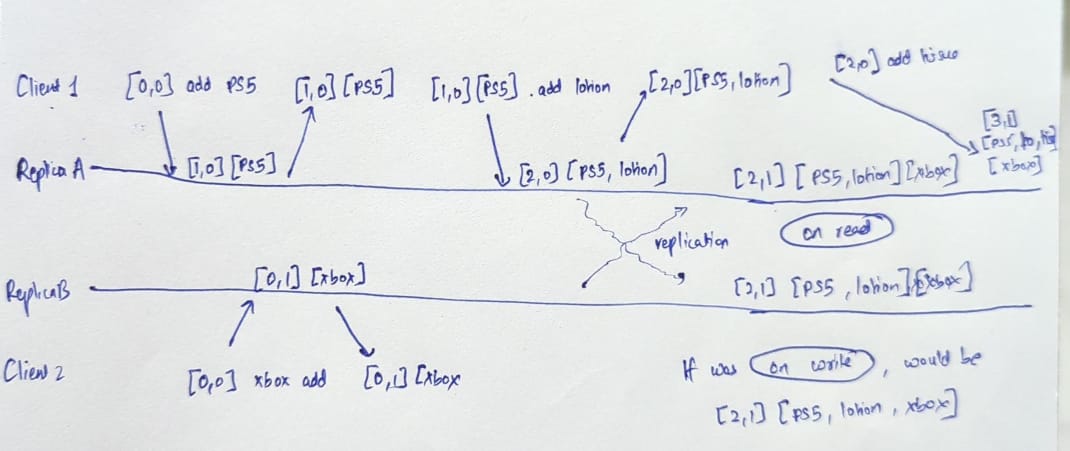 [2,0] add
Client 1 [0,0] add PS5 [1,0] [PS5] [1,0] [PS5] . add lotion [2,0] [PS5, lotion]
[3,1]
[PS5,
Replica A [1,0] [PS5] [2,0] [PS5, lotion] [2,1] [PS5, lotion] [xbox] [xbox]
on read
replication
Replica B [0,1] [xbox] [2,1] [PS5, lotion] [xbox]
Client 2 [0,0] xbox add [0,1] [xbox
If was on write, would be
[2,1] [PS5, lotion, xbox]